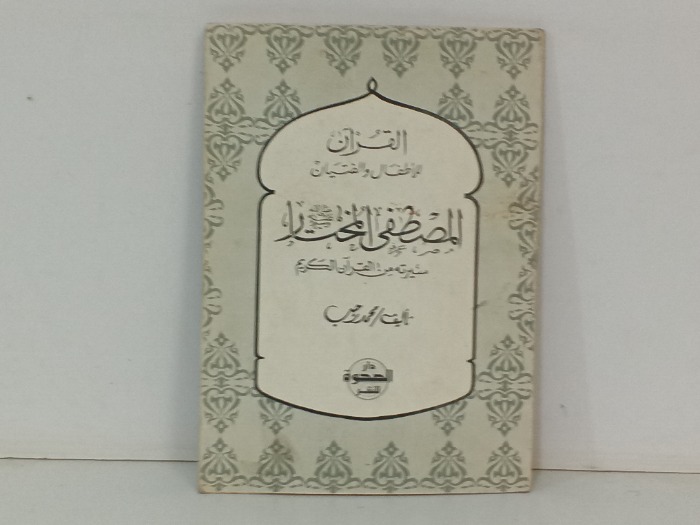 القرآن
للأطفال والفتيان
المصطفى المختار ﷺ
سيرته من القرآن الكريم
تأليف/محمد رجب
دار
الصحوة
للنشر